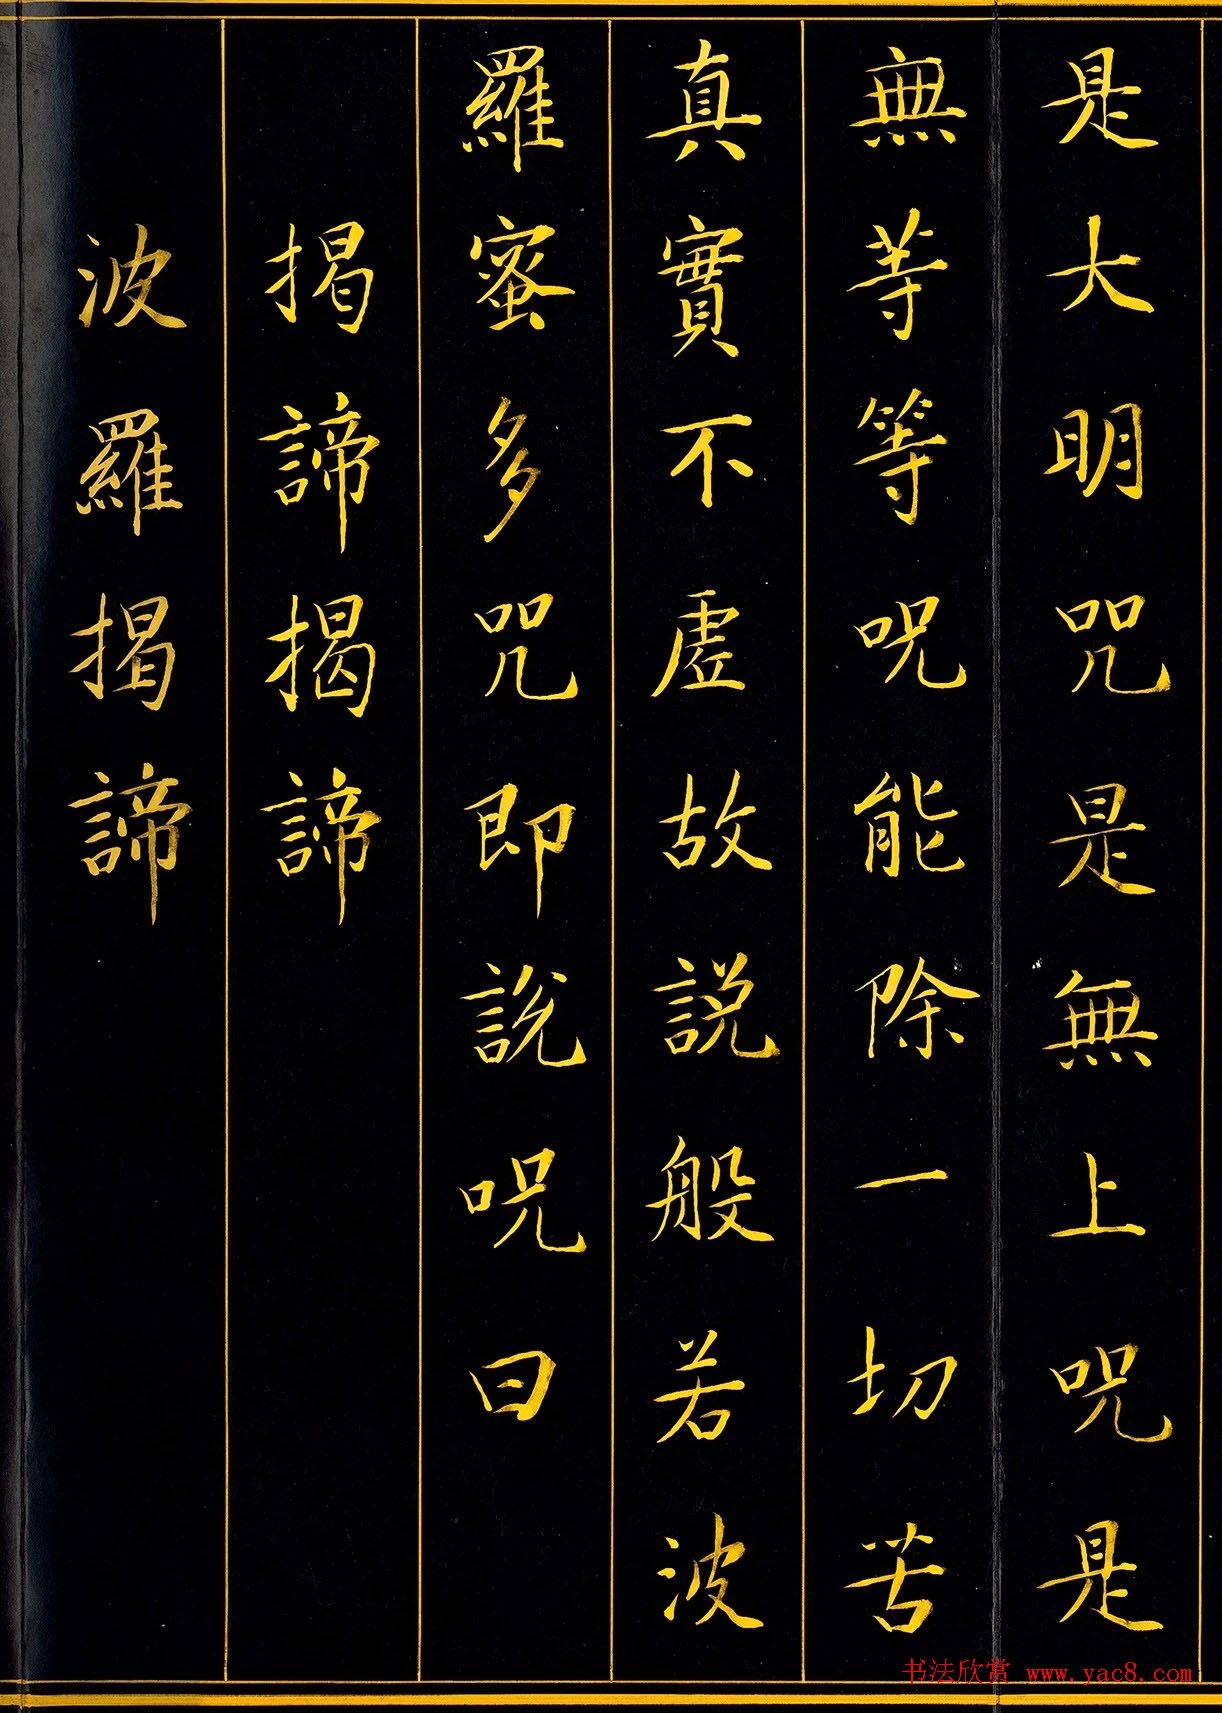 是大明咒是無上呪是
無等等呪能除一切苦
真實不虛故説般若波
羅蜜多咒即説呪曰
揭諦揭諦
波羅揭諦
书法欣赏 www.yac8.com